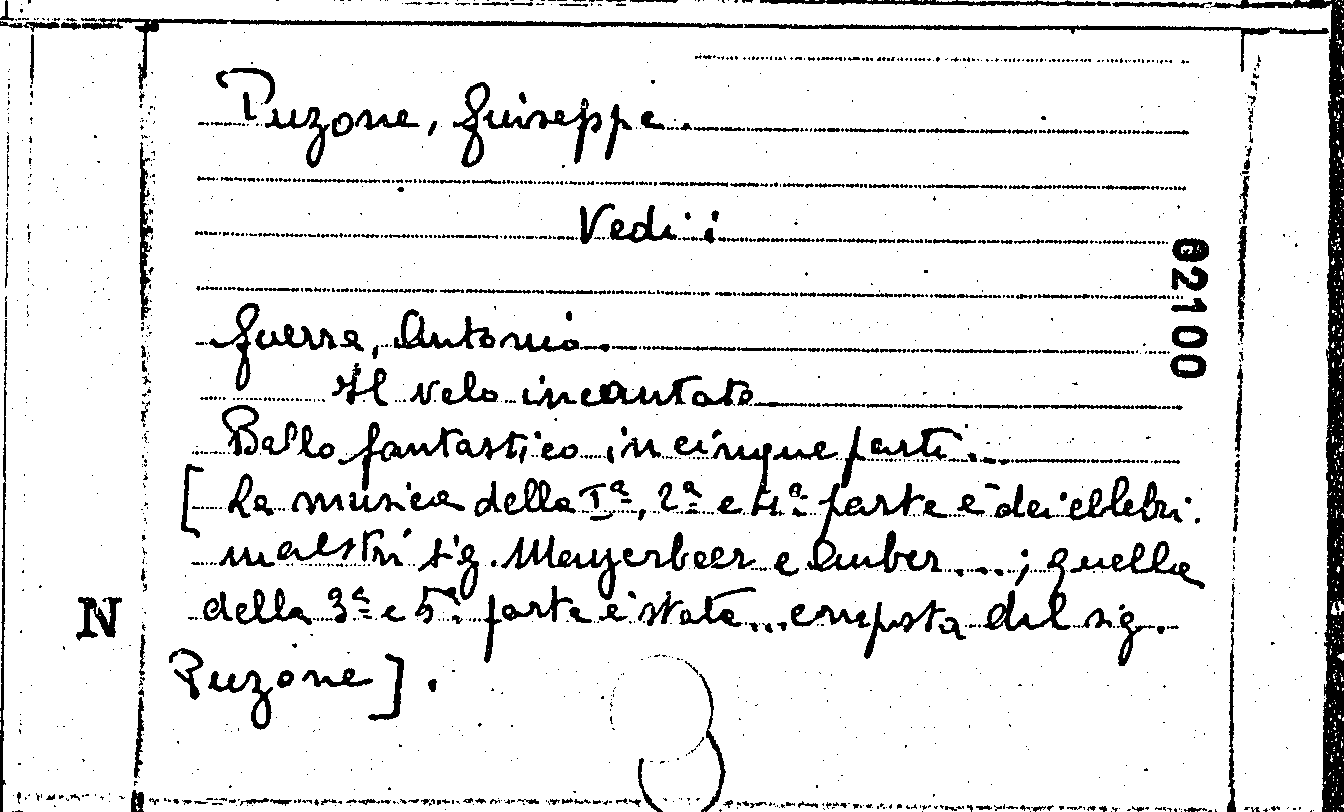 Puzone, Giuseppe.
Vedi:
02100
Guerra, Antonio.
Il velo incantato
Ballo fantastico in cinque parti...
[La musica della Iª, 2ª e 4ª parte è dei celebri
maestri sig. Mayerbeer e Auber...; quella
N
della 3ª e 5ª parte è stata... composta dal sig.
Puzone].